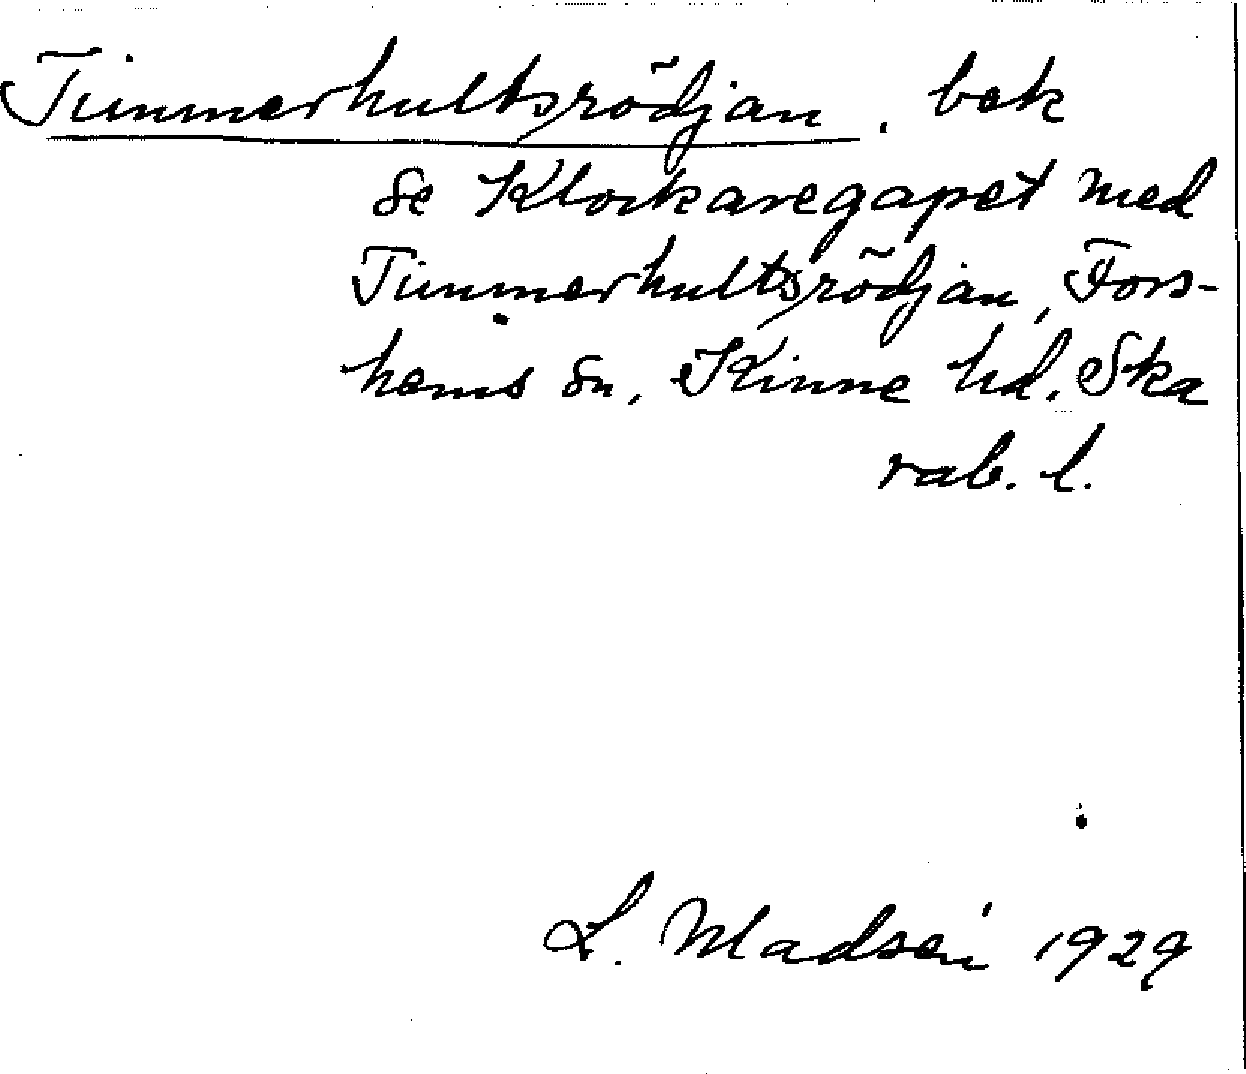 Timmerhultsrödjan, bäk
se Klockaregapet med
Timmerhultsrödjan, Fors-
hems sn, Kinne hd, Ska
rab. l.
L. Madsén 1929